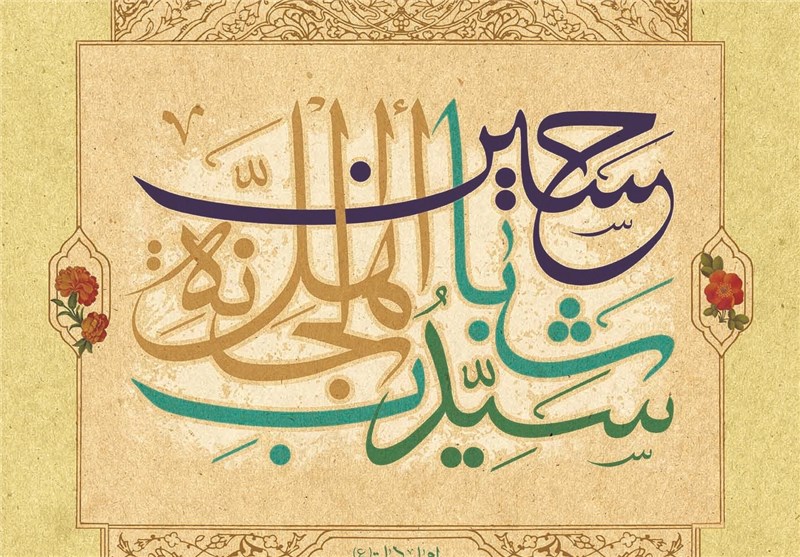 حسین سیِّدُ شبابِ أهل الجنَّة